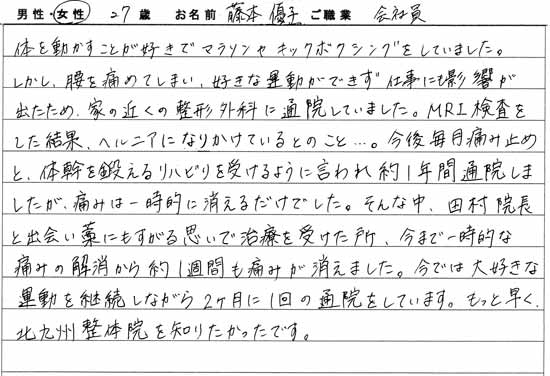 男性・女性 27歳 お名前 藤本 優子 ご職業 会社員
体を動かすことが好きでマラソンやキックボクシングをしていました。
しかし、腰を痛めてしまい、好きな運動ができず仕事にも影響が
出たため、家の近くの整形外科に通院していました。MRI検査を
した結果、ヘルニアになりかけているとのこと…。今後毎月痛み止め
と、体幹を鍛えるリハビリを受けるように言われ約1年間通院しま
したが、痛みは一時的に消えるだけでした。そんな中、田村院長
と出会い薬にもすがる思いで治療を受けた所、今まで一時的な
痛みの解消から約1週間も痛みが消えました。今では大好きな
運動を継続しながら2ヶ月に1回の通院をしています。もっと早く、
北九州整体院を知りたかったです。